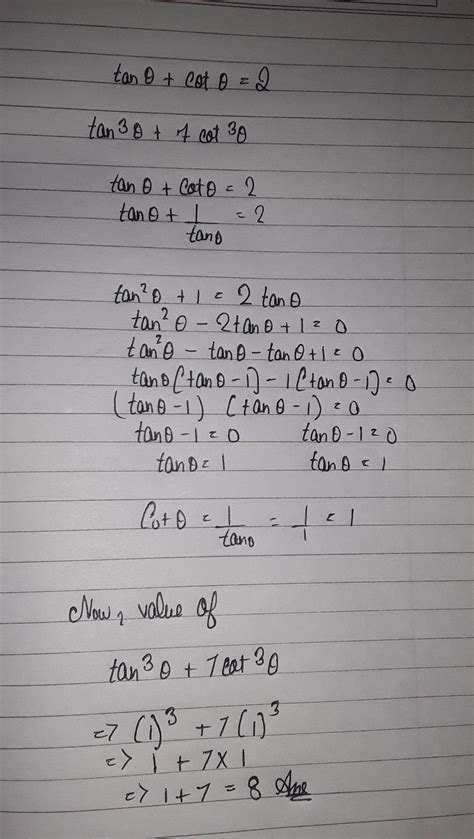 tan θ + cot θ = 2
tan³θ + 7 cot³θ
tan θ + cot θ = 2
tan θ + 1/tanθ = 2
tan²θ + 1 = 2 tan θ
tan²θ - 2tan θ + 1 = 0
tan²θ - tanθ - tanθ + 1 = 0
tanθ (tanθ - 1) - 1 (tanθ - 1) = 0
(tanθ - 1) (tanθ - 1) = 0
tanθ - 1 = 0 tanθ - 1 = 0
tanθ = 1 tanθ = 1
Cotθ = 1/tanθ = 1/1 = 1
Now, value of
tan³θ + 7cot³θ
=> (1)³ + 7(1)³
=> 1 + 7×1
=> 1+7 = 8 Ans